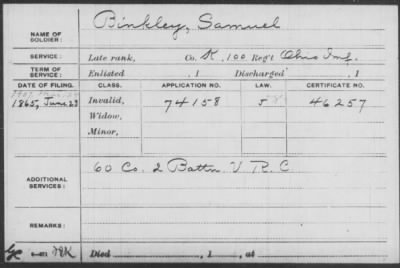 NAME OF SOLDIER: Binkley, Samuel
SERVICE: Late rank, Co. K, 100 Reg't Ohio Inf.
TERM OF SERVICE: Enlisted , 1 Discharged , 1
DATE OF FILING. CLASS. APPLICATION NO. LAW. CERTIFICATE NO.
1865, June 23 Invalid, 74158 46257
Widow,
Minor,
ADDITIONAL SERVICES: 60 Co. 2 Battn V R C
REMARKS:
Died , 1 , at